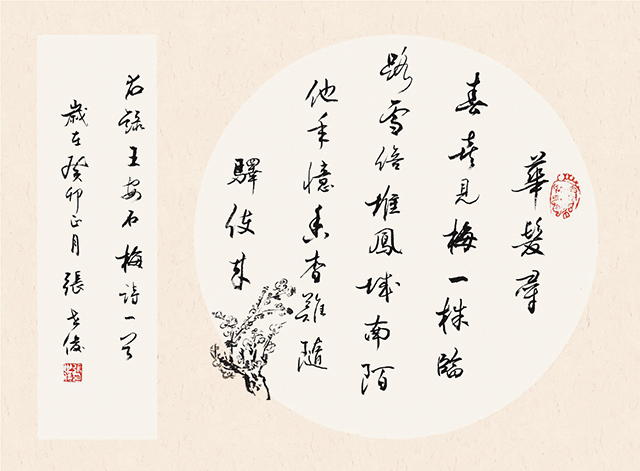 華髮尋
春喜見梅一株臨
路雪倍堆鳳城南陌
他年憶香杳難隨
驛使來
右錄王安石梅詩一首
歲在癸卯正月張俊